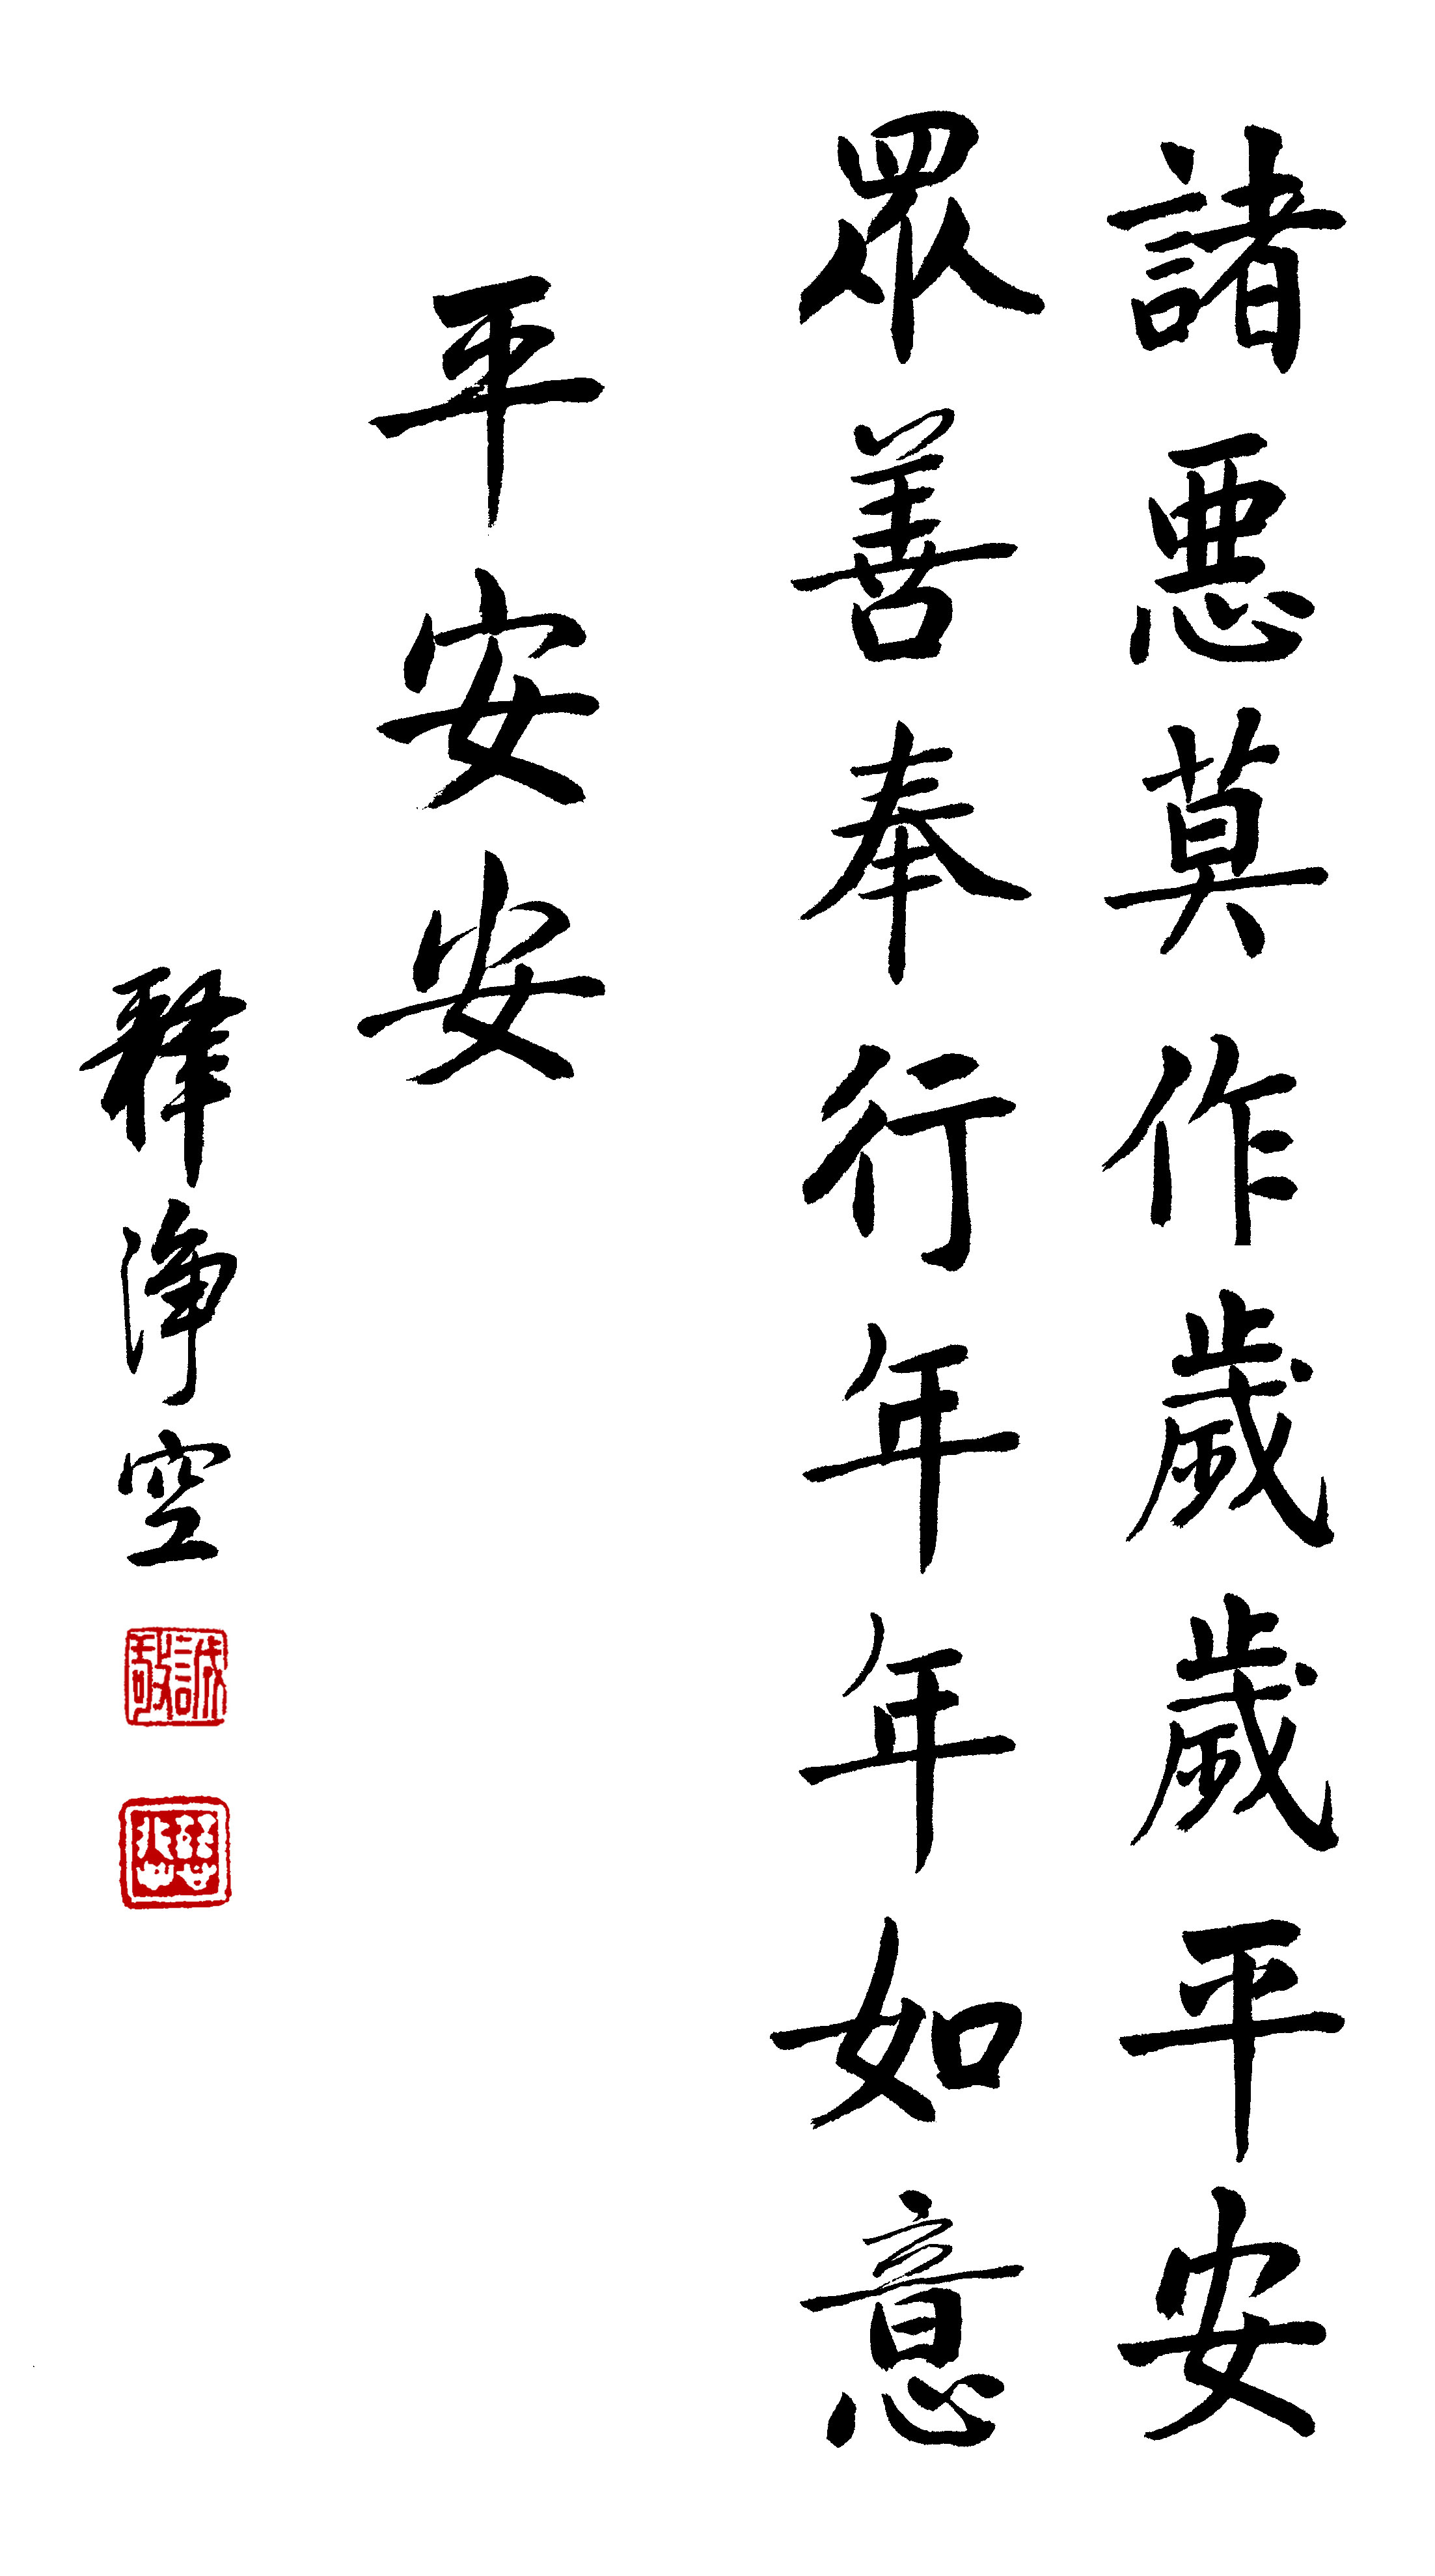 諸惡莫作歲歲平安
眾善奉行年年如意
平安安
釋淨空
誠敬